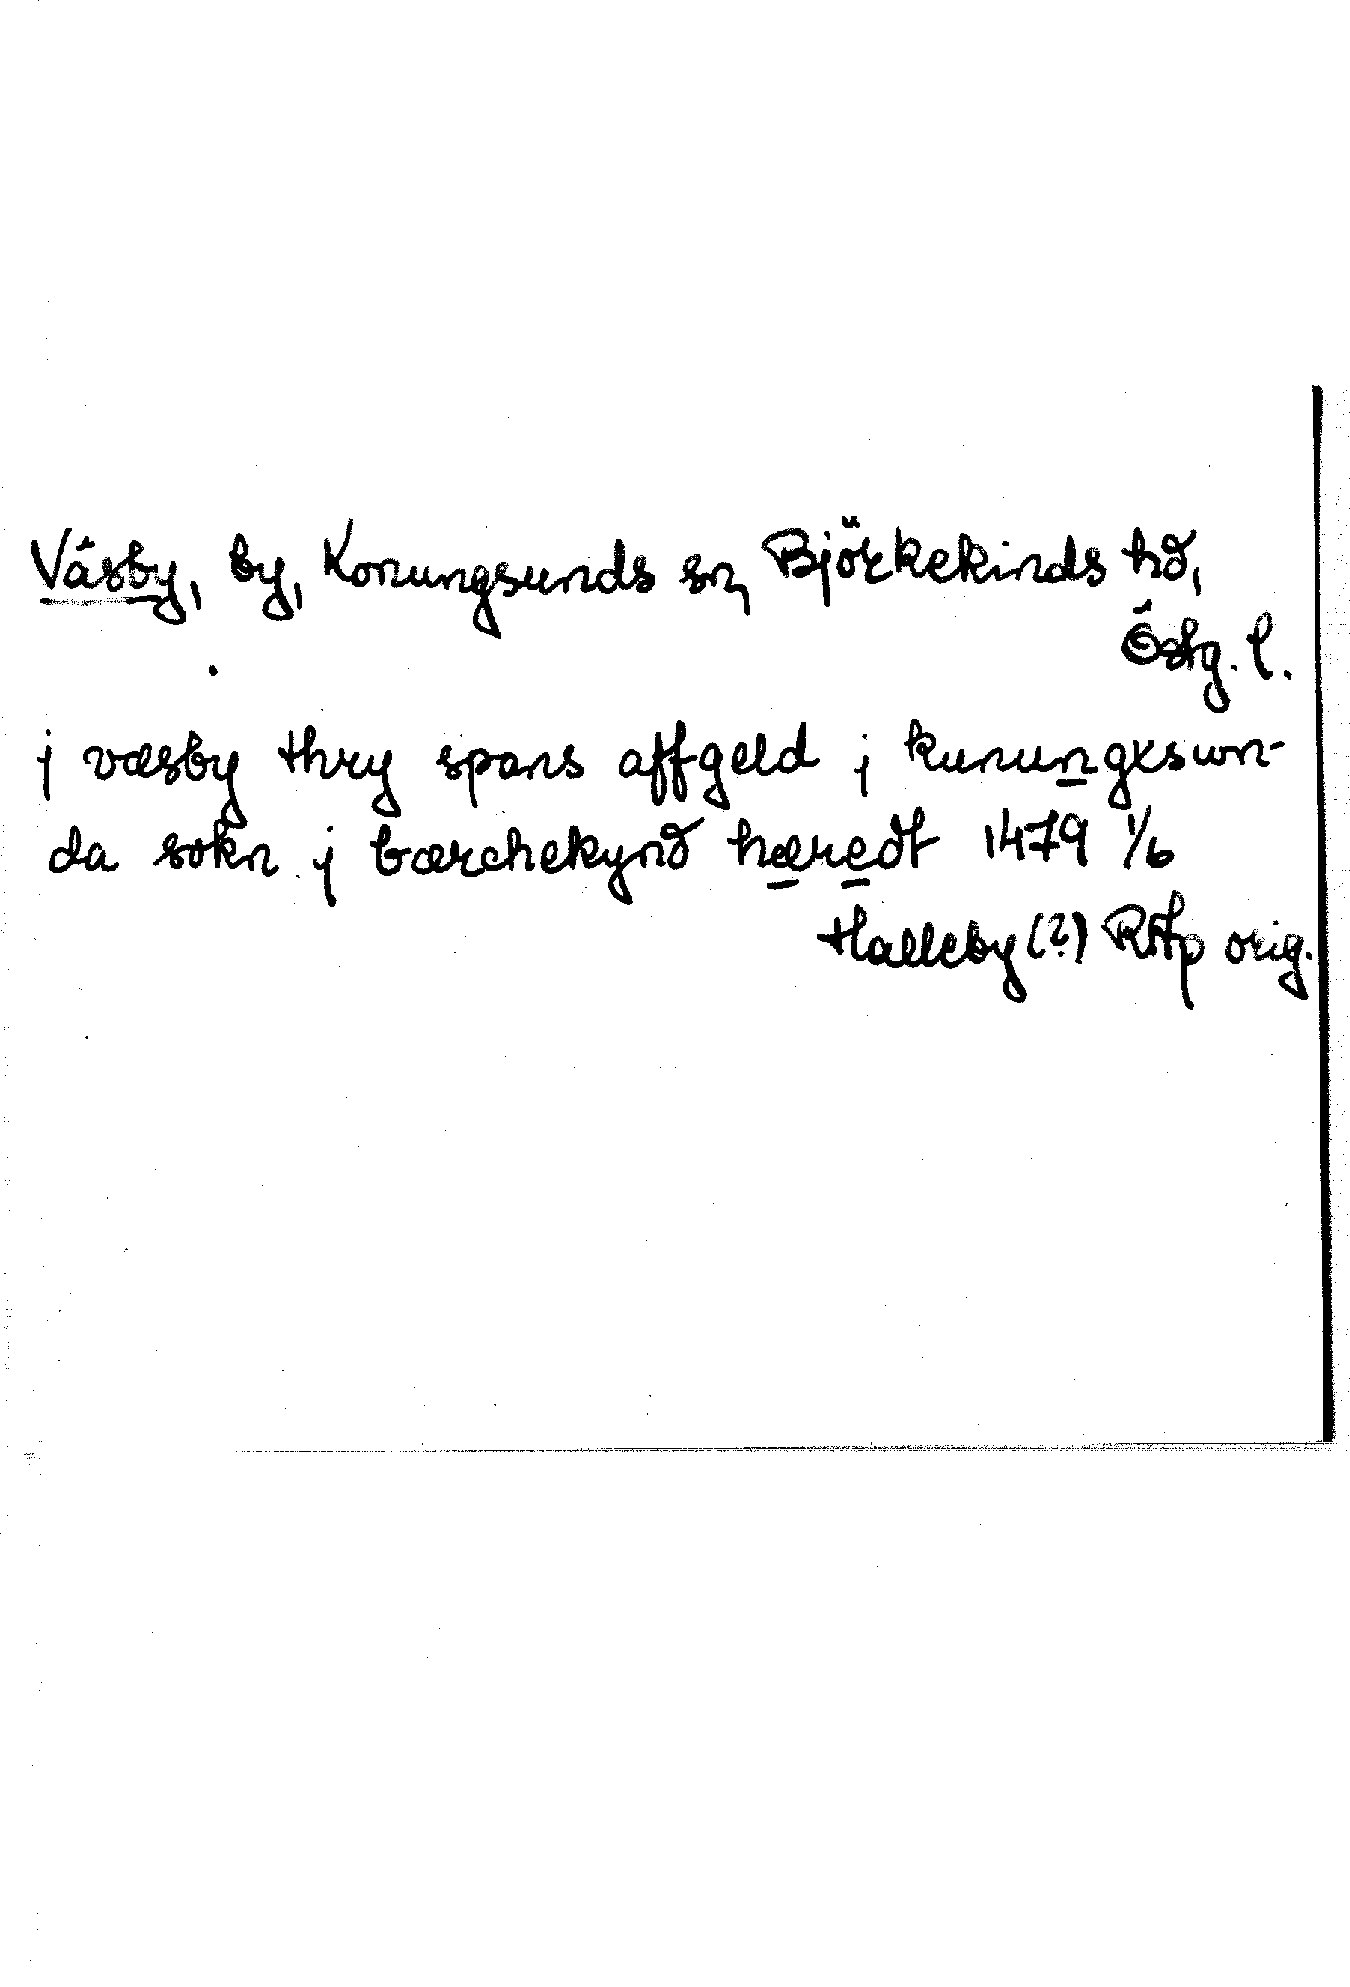 Väsby, by, Konungsunds sn, Björkekinds hd,
Östg. l.
j væsby thry spans affgeld j kunungxswn-
da sokn j bærchekynd hæredt 1479 1/6
Halleby (?) RAp orig.